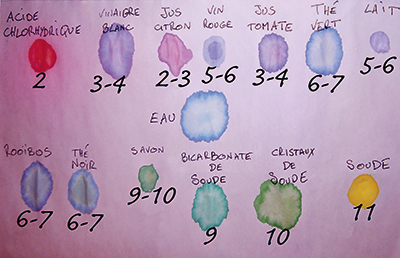 ACIDE
CHLORHYDRIQUE
2
VINAIGRE
BLANC
3-4
JUS
CITRON
2-3
VIN
ROUGE
5-6
JUS
TOMATE
3-4
THÉ
VERT
6-7
LAIT
5-6
EAU
ROOIBOS
6-7
THÉ
NOIR
6-7
SAVON
9-10
BICARBONATE
DE
SOUDE
9
CRISTAUX
DE
SOUDE
10
SOUDE
11